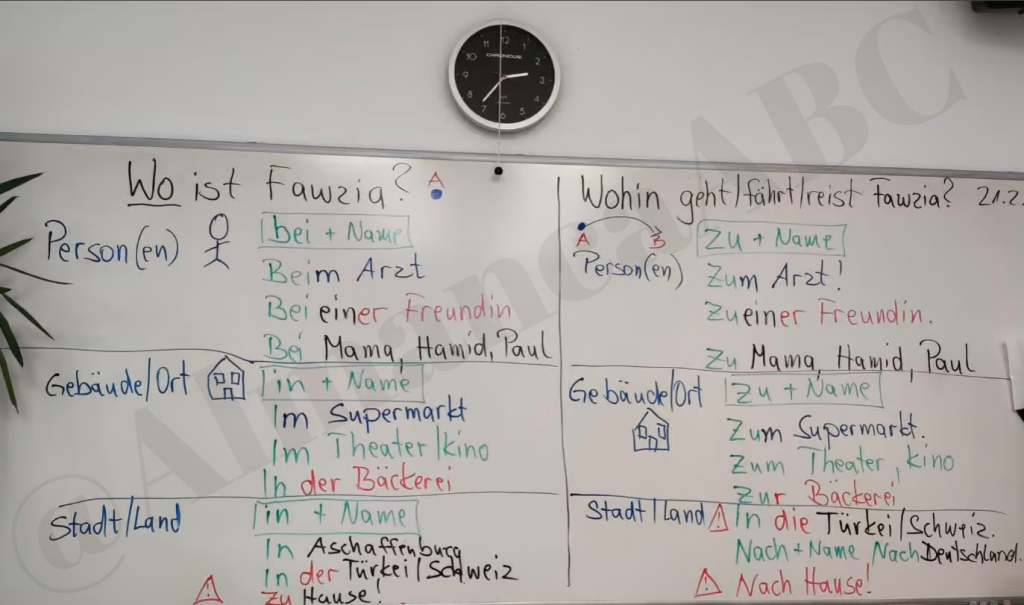 11 12 1
10 CHRONOLINE 2
9 3
8 4
7 6 5
Wo ist Fawzia? A
Person(en) bei + Name
Beim Arzt
Bei einer Freundin
Bei Mama, Hamid, Paul
Gebäude/Ort in + Name
Im Supermarkt
Im Theater/kino
In der Bäckerei
Stadt/Land in + Name
In Aschaffenburg
In der Türkei/Schweiz
! Zu Hause!
Wohin geht/fährt/reist Fawzia? 21.2.
A B Zu + Name
Person(en) Zum Arzt!
Zu einer Freundin.
Zu Mama, Hamid, Paul
Gebäude/Ort Zu + Name
Zum Supermarkt.
Zum Theater, kino
Zur Bäckerei
Stadt/Land ! In die Türkei/Schweiz.
Nach + Name Nach Deutschland.
! Nach Hause!
@AlmancaABC